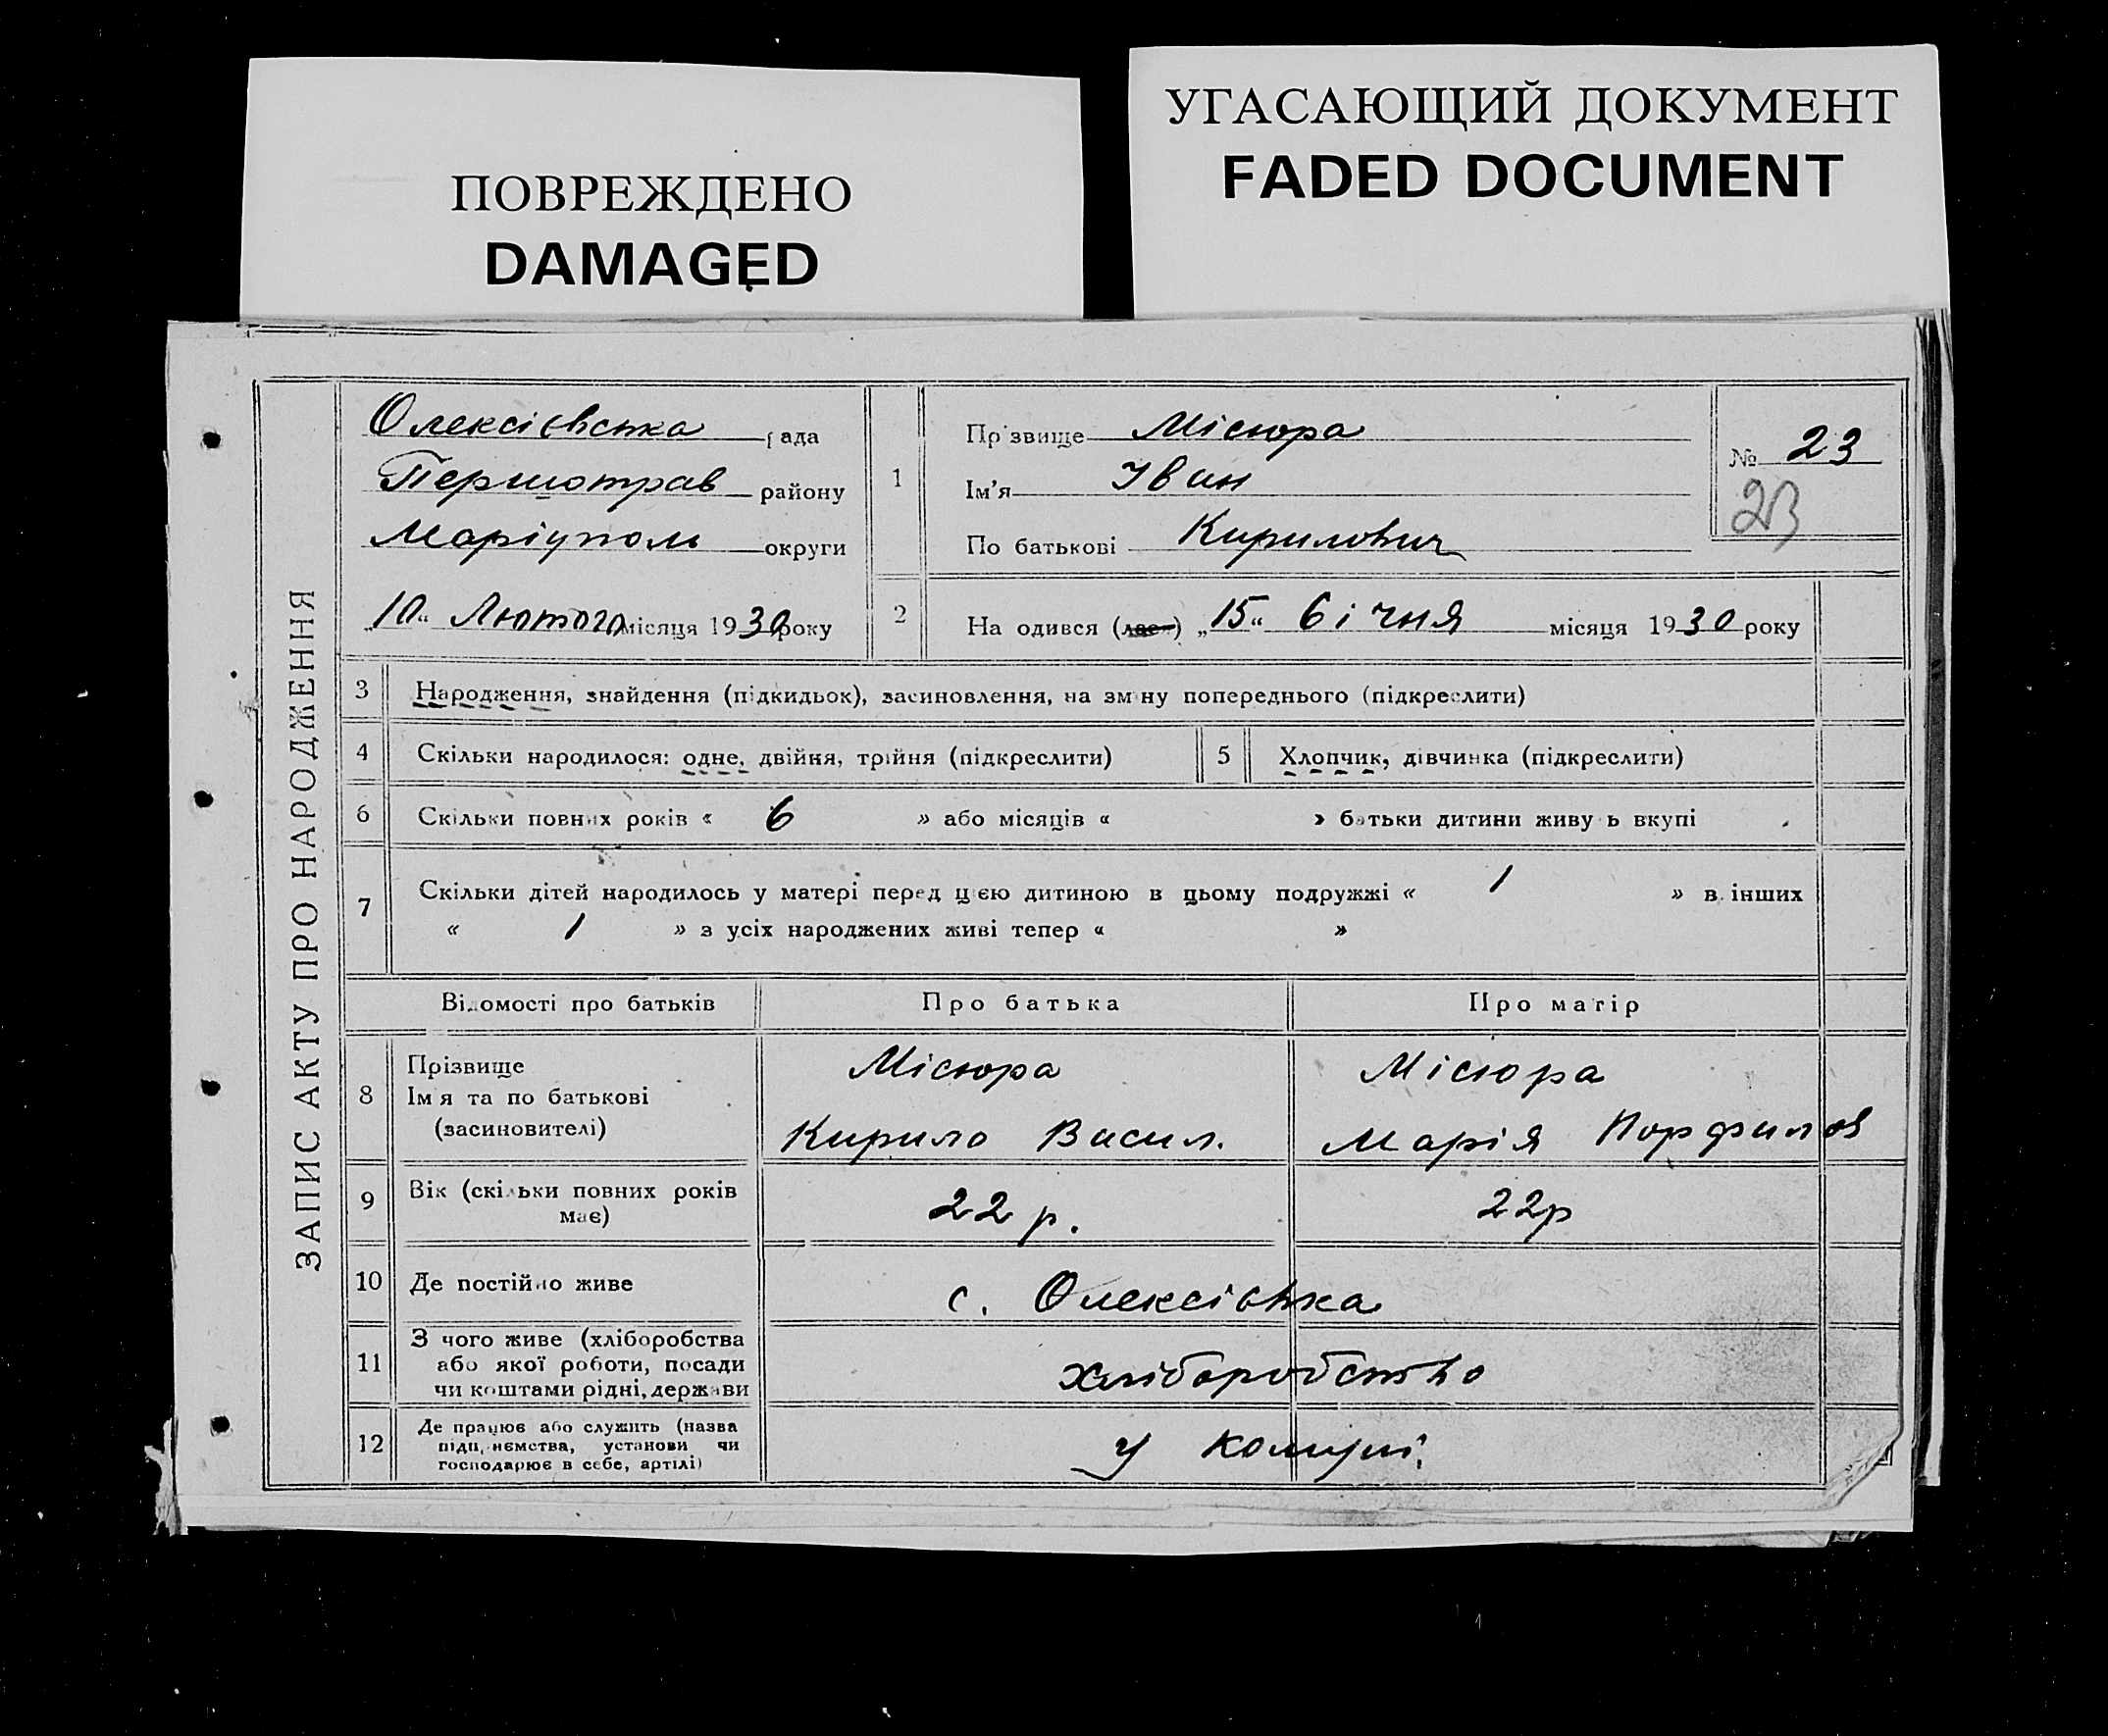 ПОВРЕЖДЕНО
DAMAGED
УГАСАЮЩИЙ ДОКУМЕНТ
FADED DOCUMENT
ЗАПИС АКТУ ПРО НАРОДЖЕННЯ
Олексієвська рада
Першотрав району
Маріуполь округи
„10“ Лютого місяця 1930 року
1
Прізвище Місюра
Ім'я Іван
По батькові Кирилович
№ 23
23
2 На одився (лася) „15“ січня місяця 1930 року
3 Народження, знайдення (підкидьок), засиновлення, на зміну попереднього (підкреслити)
4 Скільки народилося: одне, двійня, трійня (підкреслити)
5 Хлопчик, дівчинка (підкреслити)
6 Скільки повних років « 6 » або місяців « » батьки дитини живу ь вкупі
7 Скільки дітей народилось у матері перед цією дитиною в цьому подружжі « 1 » в інших
« 1 » з усіх народжених живі тепер « »
Відомості про батьків Про батька Про матір
8 Прізвище
Імя та по батькові
(засиновителі)
Місюра
Кирило Васил.
Місюра
Марія Порфилов
9 Вік (скільки повних років
має)
22 р.
22р
10 Де постійно живе
с. Олексієвка
11 З чого живе (хліборобства
або якої роботи, посади
чи коштами рідні, держави
хліборобство
12 Де працює або служить (назва
підприємства, установи чи
господарює в себе, артілі)
у комуні